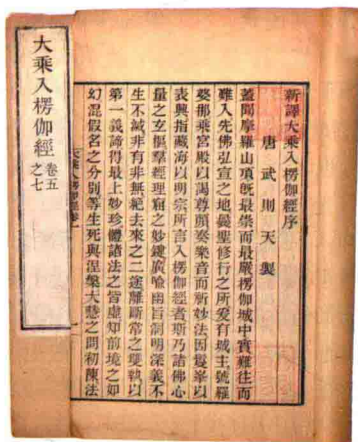 新譯大乘入楞伽經序
唐 武則天 製
蓋聞摩羅山頂既最崇而最嚴楞伽城中實難往而
難入先佛弘宣之地曩聖修行之所爰有城主號羅
婆那乘宮殿以謁尊顏奏樂音而祈妙法因鬘峯以
表興指藏海以明宗所言入楞伽經者斯乃諸佛心
量之玄樞羣經理窟之妙鍵廣喻幽旨洞明深義不
生不滅非有非無絕去來之二途離斷常之雙執以
第一義諦得最上妙珍體諸法之皆虛知前境之如
幻混假名之分別等生死與涅槃大慧之問初陳法
大乘入楞伽經
卷五
之七